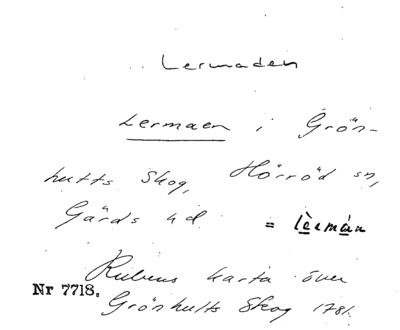 Lermaden
Lermaen i Grön-
hults Skog, Hörröd sn,
Gärds hd = lèrmán
Rubens karta över
Nr 7718. Grönhults Skog 1781.